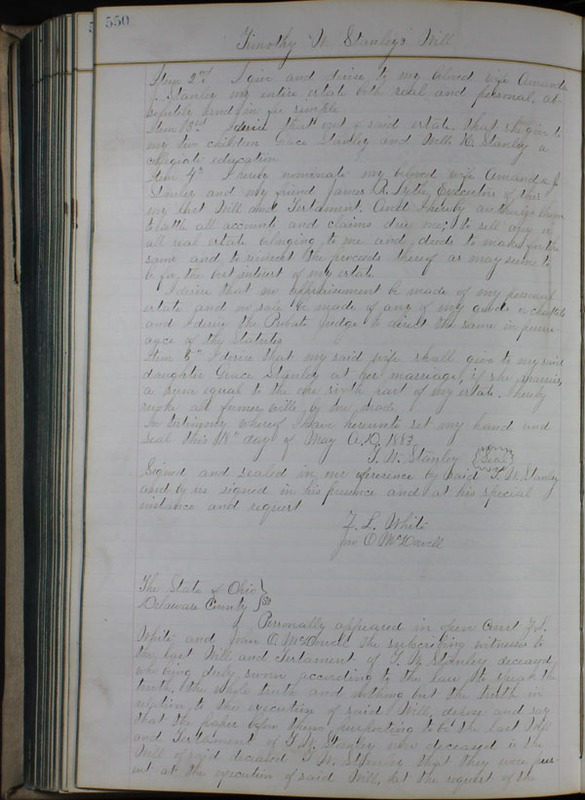 550
Timothy W. Stanley's Will
Item 2nd I give and devise to my beloved wife Amanda
J. Stanley my entire estate both real and personal, ab-
solutely and in fee simple
Item 3rd I desire that out of said estate, that she give to
my two children Grace Stanley and Wells K. Stanley a
collegiate education
Item 4th I hereby nominate my beloved wife Amanda J.
Stanley and my friend James R. Executors of this
my last Will and Testament. And I hereby authorize them
to settle all accounts and claims due me; to sell any or
all real estate belonging to me and deeds to make for the
same and to reinvest the proceeds thereof as may seem to
be for the best interest of my estate
I desire that no appraisement be made of my personal
estate and no sale be made of any of my goods or chattels
and I desire the Probate Judge to direct the same in pursu-
ance of the statutes
Item 5th I desire that my said wife shall give to my said
daughter Grace Stanley at her marriage, if she marries,
a sum equal to the one sixth part of my estate. I hereby
revoke all former wills by me made
In testimony whereof I have hereunto set my hand and
seal this day of May A.D. 1883
T. W. Stanley Seal
Signed and sealed in our presence by said T. W. Stanley
and by us signed in his presence and at his special
instance and request
F. L. White
Jno. C. McDowell
The State of Ohio
Delaware County } ss
Personally appeared in open Court F. L.
White and Jno. C. McDowell the subscribing witnesses to
the last Will and Testament of T. W. Stanley deceased,
who being duly sworn according to the law to speak the
truth, the whole truth and nothing but the truth in
relation to the execution of said Will, depose and say
that the paper before them purporting to be the last Will
and Testament of T. W. Stanley now deceased is the
Will of said deceased T. W. Stanley that they were pres-
ent at the execution of said Will, at the request of the